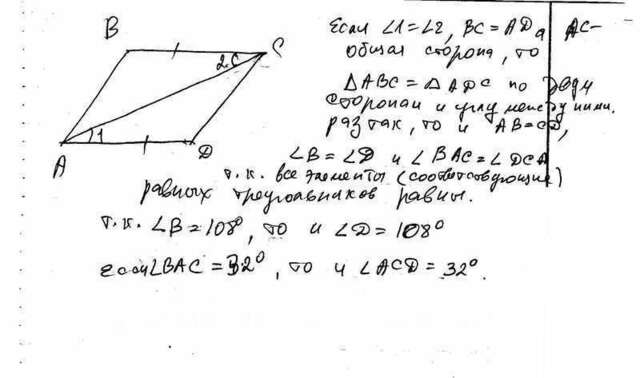 B
C
2
A
1
D
Если ∠1=∠2, BC=AD, а AC-
общая сторона, то
△ABC=△ADC по двум
сторонам и углу между ними.
раз так, то и AB=CD,
∠B=∠D и ∠BAC=∠DCA
т.к. все элементы (соответствующие)
равных треугольников равны.
т.к. ∠B=108°, то и ∠D=108°
если ∠BAC=32°, то и ∠ACD=32°.